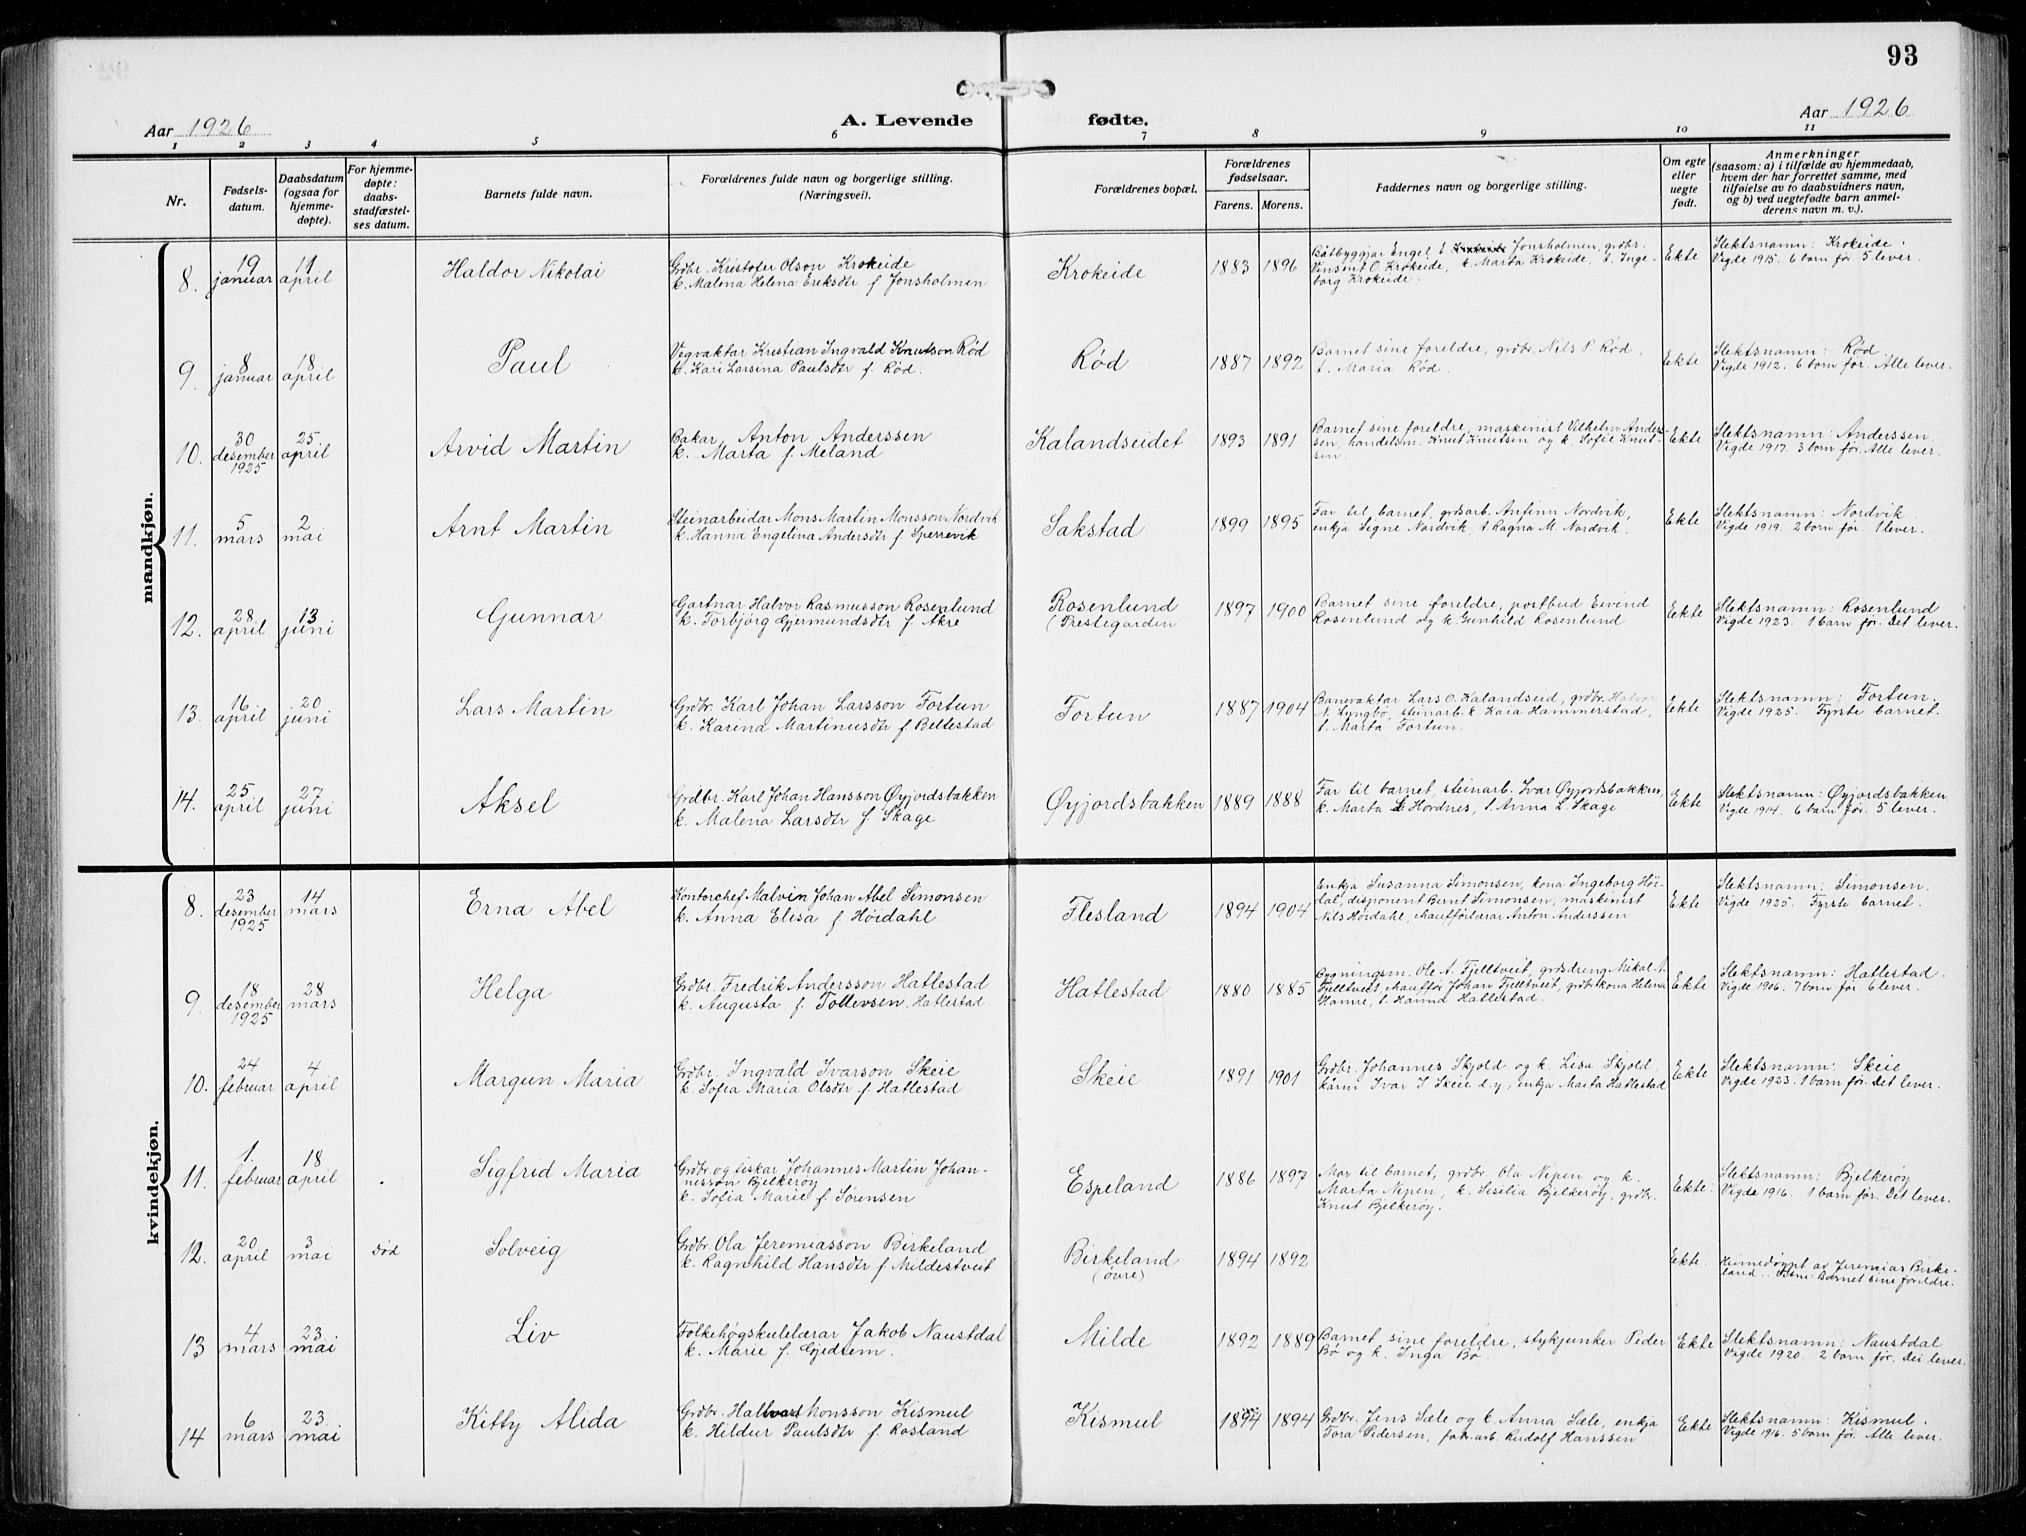 93
Aar 1926
A. Levende fødte.
Aar 1926
1 2 3 4 5 6 7 8 9 10 11
Nr.
Fødsels-
datum.
Daabsdatum
(ogsaa for
hjemme-
døpte).
For hjemme-
døpte:
daabs-
stadfæstel-
ses datum.
Barnets fulde navn.
Forældrenes fulde navn og borgerlige stilling.
(Næringsvei).
Forældrenes bopæl.
Forældrenes
fødselsaar.
Farens. Morens.
Faddernes navn og borgerlige stilling.
Om egte
eller
uegte
født.
Anmerkninger
(saasom: a) i tilfælde av hjemmedaab,
hvem der har forrettet samme, med
tilføielse av to daabsvidners navn,
og b) ved uegtefødte barn anmel-
derens navn m. v.).
mandkjøn.
8.
19
januar
11
april
Haldor Nikolai
Grdbr. Kristofer Olson Krokeide
k. Malena Helena Eriksdtr f. Jonsholmen
Krokeide
1883 1896
Båtbyggjar Engel E Jonsholmen, grdbr.
Vinsent O. Krokeide, k. Marta Krokeide, t. Inge-
borg Krokeide.
Ekte
Slektsnamn: Krokeide.
Vigde 1915. 6 born før 5 lever.
9.
8
januar
18
april
Paul
Vegvaktar Kristian Ingvald Knutson Rød
k. Kari Larsina Paulsdtr f. Rød.
Rød
1887 1892
Barnet sine foreldre, grdbr. Nils P. Rød,
t. Maria Rød.
Ekte
Slektsnamn: Rød
Vigde 1912. 6 born før. Alle lever.
10.
30
desember
1925
25
april
Arvid Martin
Bakar Anton Anderssen
k. Marta f. Meland
Kalandseidet
1893 1891
Barnet sine foreldre, maskinist Vilhelm Anders-
sen, handelsm. Knut Knutsen og k. Sofie Knut-
sen.
Ekte
Slektsnamn: Anderssen.
Vigde 1917. 3 born før. Alle lever.
11.
5
mars
2
mai
Arnt Martin
Steinarbeidar Mons Martin Monsson Nordvik
k. Hanna Engelena Andersdtr f. Sperrevik
Sakstad
1899 1895
Far til barnet, grdsarb. Anfinn Nordvik,
enkja Signe Nordvik, t. Ragna M. Nordvik.
Ekte
Slektsnamn: Nordvik
Vigde 1919. 2 born før 1 lever.
12.
28
april
13
juni
Gunnar
Gartnar Halvor Rasmusson Rosenlund
k. Torbjørg Gjermundsdtr f. Akre
Rosenlund
(Prestegarden
1897 1900
Barnet sine foreldre, postbud Eivind
Rosenlund og k. Gunhild Rosenlund
Ekte
Slektsnamn: Rosenlund
Vigde 1923. 1 barn før. Det lever.
13.
16
april
20
juni
Lars Martin
Grdbr. Karl Johan Larsson Fortun
k. Karina Martinusdtr f. Beltestad
Fortun
1887 1904
Banevaktar Lars O. Kalandseid, grdbr. Halvor
N. Lyngbø, steinarb. k. Kaia Hammerstad,
t. Marta Fortun.
Ekte
Slektsnamn: Fortun.
Vigde 1925. Fyrste barnet.
14.
25
april
27
juni
Aksel
Grdbr. Karl Johan Hansson Øyjordsbakken
k. Malena Larsdtr f. Skage
Øyjordsbakken
1889 1888
Far til barnet, steinarb. Ivar Øyjordsbakken,
k. Marta Hordnes, t. Anna L. Skage
Ekte
Slektsnamn: Øyjordsbakken
Vigde 1914. 6 born før. 5 lever.
kvindekjøn.
8.
23
desember
1925
14
mars
Erna Abel
Kontorchef Malvin Johan Abel Simonsen
k. Anna Elisa f. Høidahl
Flesland
1894 1904
Enkja Susanna Simonsen, kona Ingeborg Høi-
dal, disponent Bernt Simonsen, maskinist
Nils Høidahl, chauffør lærar Anton Anderssen
Ekte
Slektsnamn: Simonsen.
Vigde 1925. Fyrste barnet.
9.
18
desember
1925
28
mars
Helga
Grdbr. Fredrik Andersson Hatlestad
k. Augusta f. Tollevsen. Hatlestad
Hatlestad
1880 1885
Bygningsm. Ole A. Fjelltveit, grdsdreng Mikal A.
Fjelltveit, chauffør Johan Fjelltveit, grdbrkona Helena
Hamre, t. Hanna Hatlestad.
Ekte
Slektsnamn: Hatlestad.
Vigde 1906. 7 born før. 6 lever.
10.
24
februar
4
april
Margun Maria
Grdbr. Ingvald Ivarson Skeie
k. Sofia Maria Olsdtr f. Hatlestad
Skeie
1891 1901
Grdbr. Johannes Skjold og k. Lisa Skjold,
kårm Ivar J Skeie d.y, enkja Marta Hatlestad
Ekte
Slektsnamn: Skeie
Vigde 1923. 1 barn før. Det lever.
11.
1.
februar
18
april
Sigfrid Maria
Grdbr. og fiskar Johannes Martin Johan-
nesson Bjelkerøy
k. Sofia Marie f. Sørensen
Espeland
1886 1897
Mor til barnet, grdbr. Ola Nipen og k.
Marta Nipen, k. Sesilia Bjelkerøy, grdbr.
Knut Bjelkerøy.
Ekte
Slektsnamn: Bjelkerøy
Vigde 1916. 1 barn før. Det lever.
12.
20
april
3
mai
død
Solveig
Grdbr. Ola Jeremiasson Birkeland
k. Ragnhild Hansdtr f. Mildestveit
Birkeland
(øvre)
1894 1892
Ekte.
Heimedøypt av Jeremias Birke-
land. Barnet sine foreldre.
13
4
mars
23
mai
Liv
Folkehøgskulelærar Jakob Naustdal
k. Marie f. Gjedrem.
Milde
1892 1889
Barnet sine foreldre, stykjunker Peder
Bø og k. Inga Bø.
Ekte
Slektsnamn: Naustdal
Vigde 1920. 2 born før. Dei lever.
14
6
mars
23
mai
Kitty Alida
Grdbr. Hallvard Monsson Kismul
k. Hildur Paulsdtr f. Rosland
Kismul
1894 1894
Grdbr. Jens Sæle og k. Anna Sæle, enkja
Tora Pedersen, fabr.arb. Rudolf Hanssen
Ekte
Slektsnamn: Kismul.
Vigde 1916. 5 born før. Alle lever.